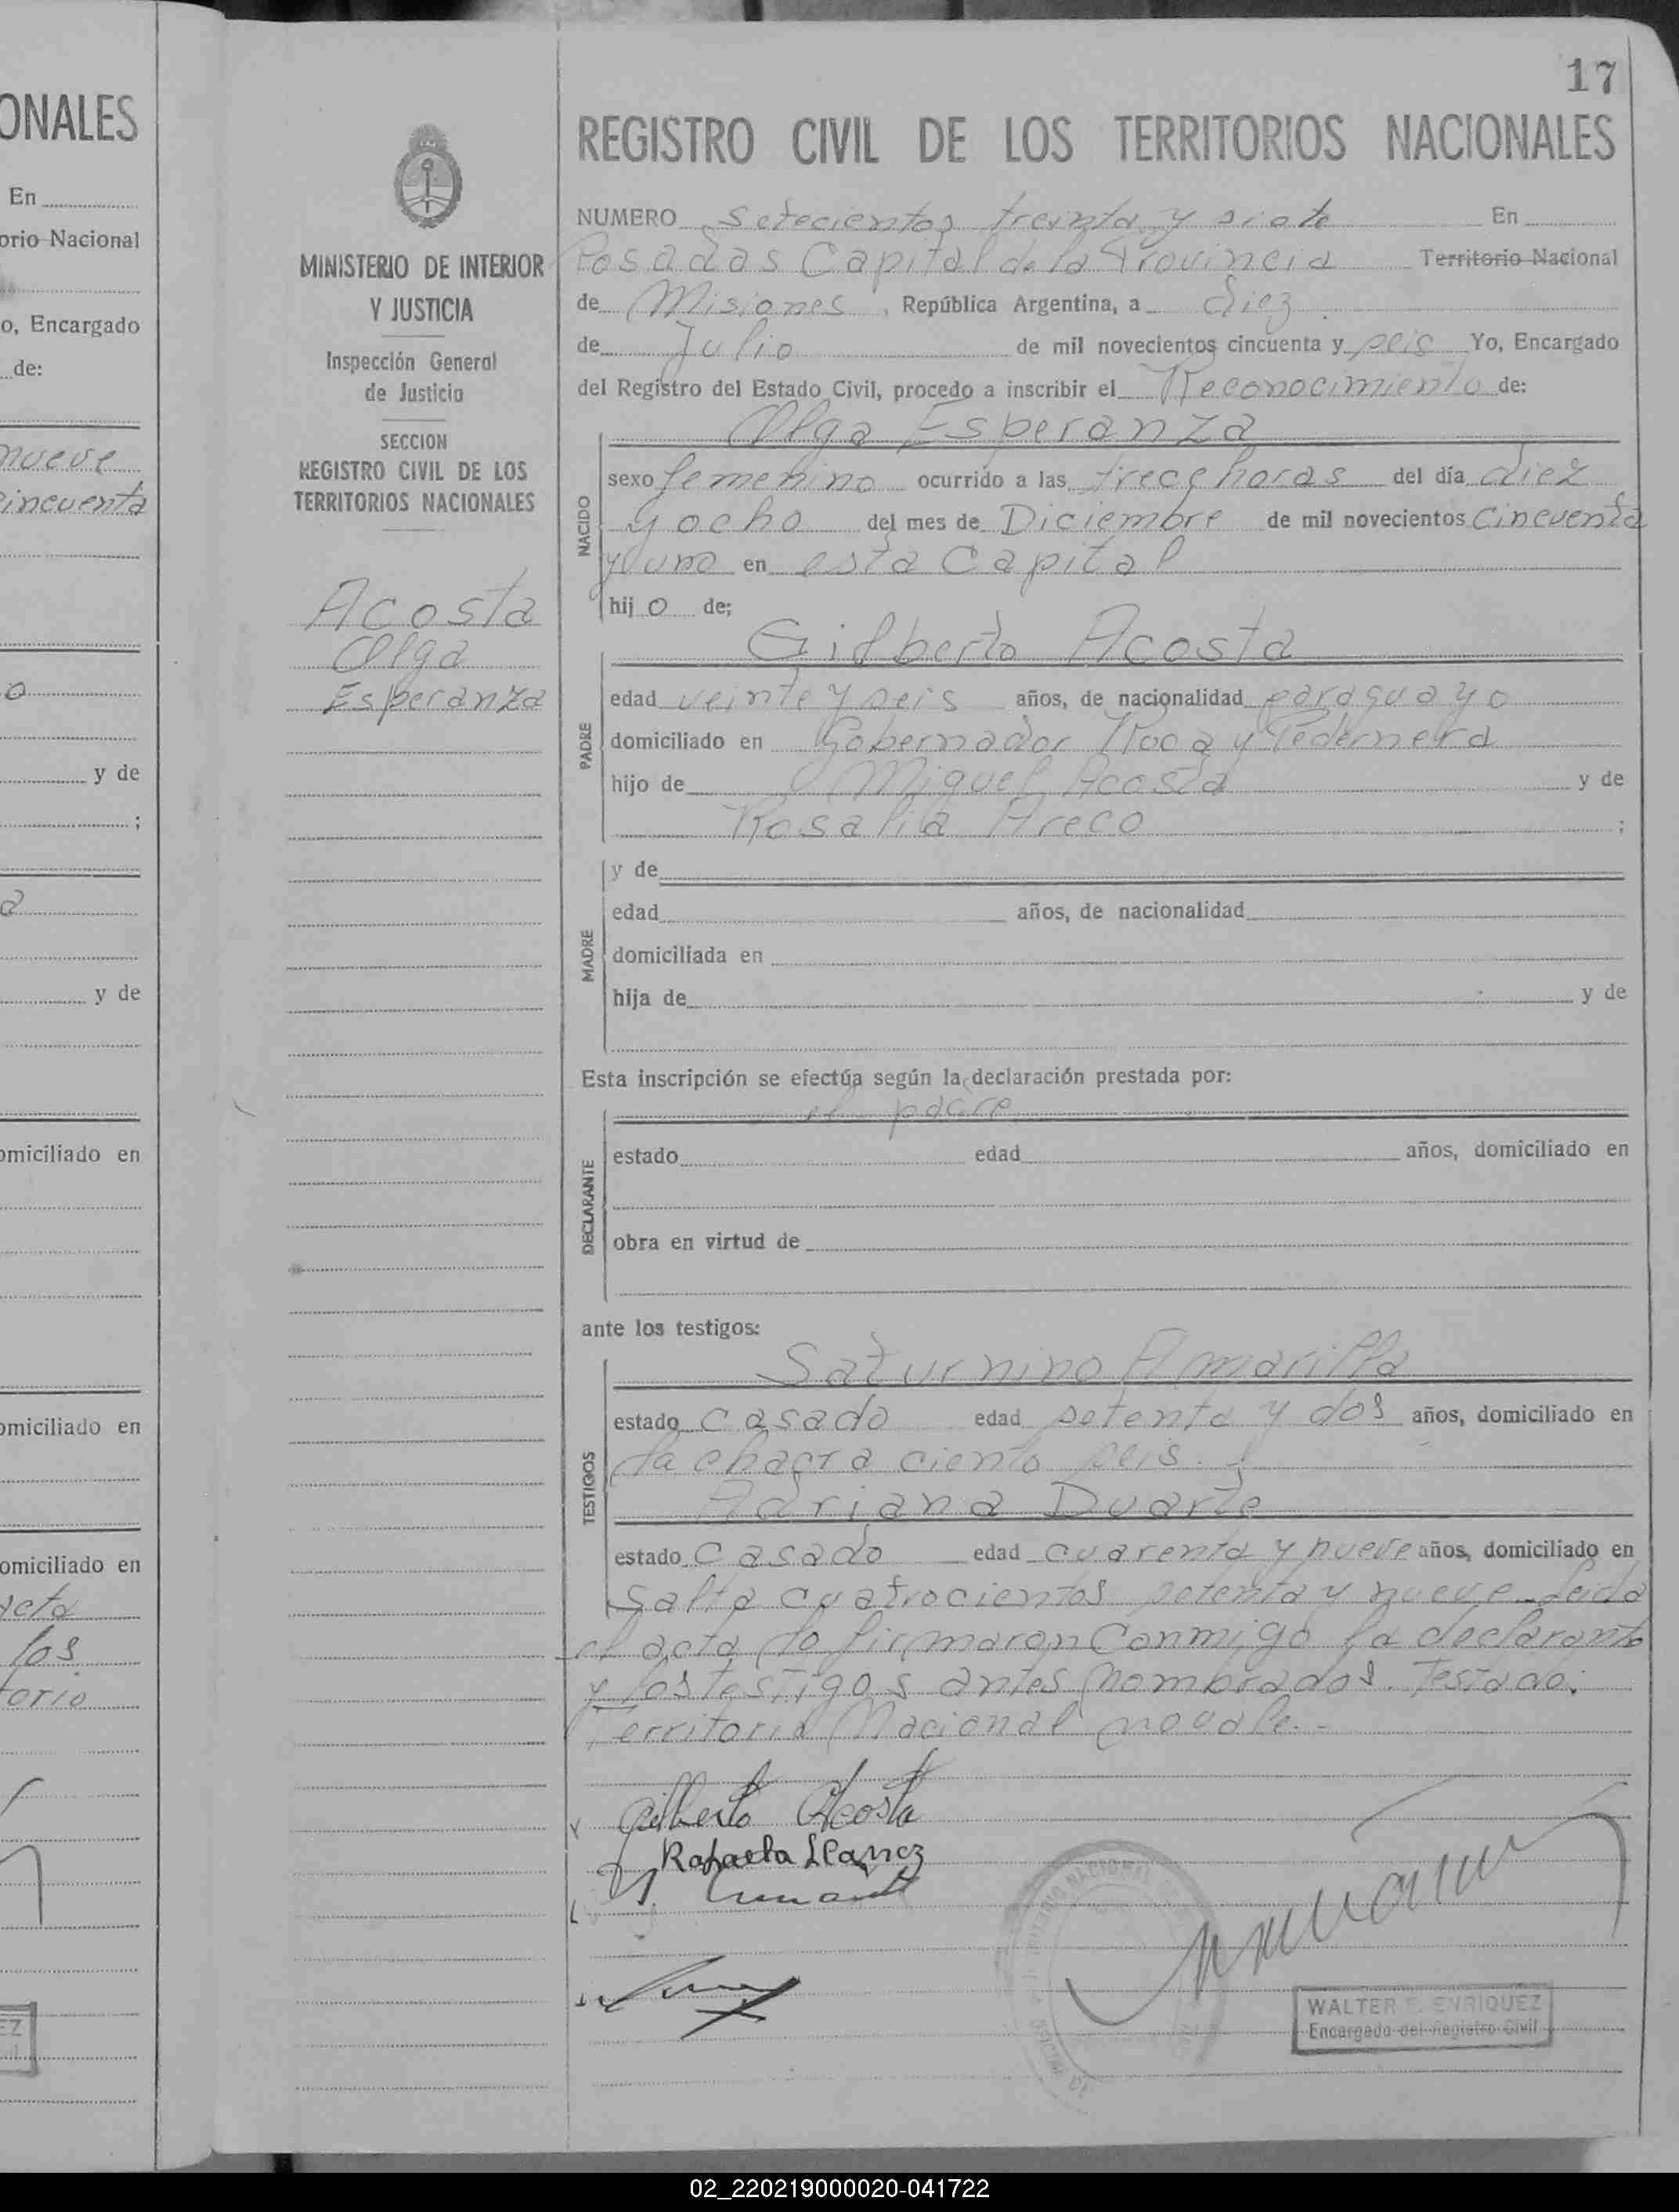 ONALES
En
orio Nacional
o, Encargado
de:
nueve
cincuenta
o
y de
;
a
y de
omiciliado en
omiciliado en
omiciliado en
los
torio
EZ
MINISTERIO DE INTERIOR
Y JUSTICIA
Inspección General
de Justicia
SECCION
REGISTRO CIVIL DE LOS
TERRITORIOS NACIONALES
Acosta
Olga
Esperanza
17
REGISTRO CIVIL DE LOS TERRITORIOS NACIONALES
NUMERO Setecientos treinta y siete En
Posadas Capital de la Provincia Territorio Nacional
de Misiones, República Argentina, a diez
de Julio de mil novecientos cincuenta y seis Yo, Encargado
del Registro del Estado Civil, procedo a inscribir el Reconocimiento de:
Olga Esperanza
NACIDO
sexo femenino ocurrido a las trece horas del día diez
y ocho del mes de Diciembre de mil novecientos cincuenta
y uno en esta Capital
hijo de;
Gilberto Acosta
PADRE
edad veinte y seis años, de nacionalidad paraguayo
domiciliado en Gobernador Roca y Pedernera
hijo de Miguel Acosta y de
Rosalia Areco ;
MADRE
y de
edad años, de nacionalidad
domiciliada en
hija de y de
Esta inscripción se efectúa según la declaración prestada por:
el padre
DECLARANTE
estado edad años, domiciliado en
obra en virtud de
ante los testigos:
Saturnino Amarilla
TESTIGOS
estado casado edad setenta y dos años, domiciliado en
la chacra ciento seis.
Adriana Duarte
estado casado edad cuarenta y nueve años, domiciliado en
Salta cuatrocientos setenta y nueve. Leida
el acta la firmaron conmigo la declarante
y los testigos antes nombrados. Testado:
Territorio Nacional no vale.-
Gilberto Acosta
Rafaela
NACIONAL
WALTER E. ENRIQUEZ
Encargado del Registro Civil
02_220219000020-041722